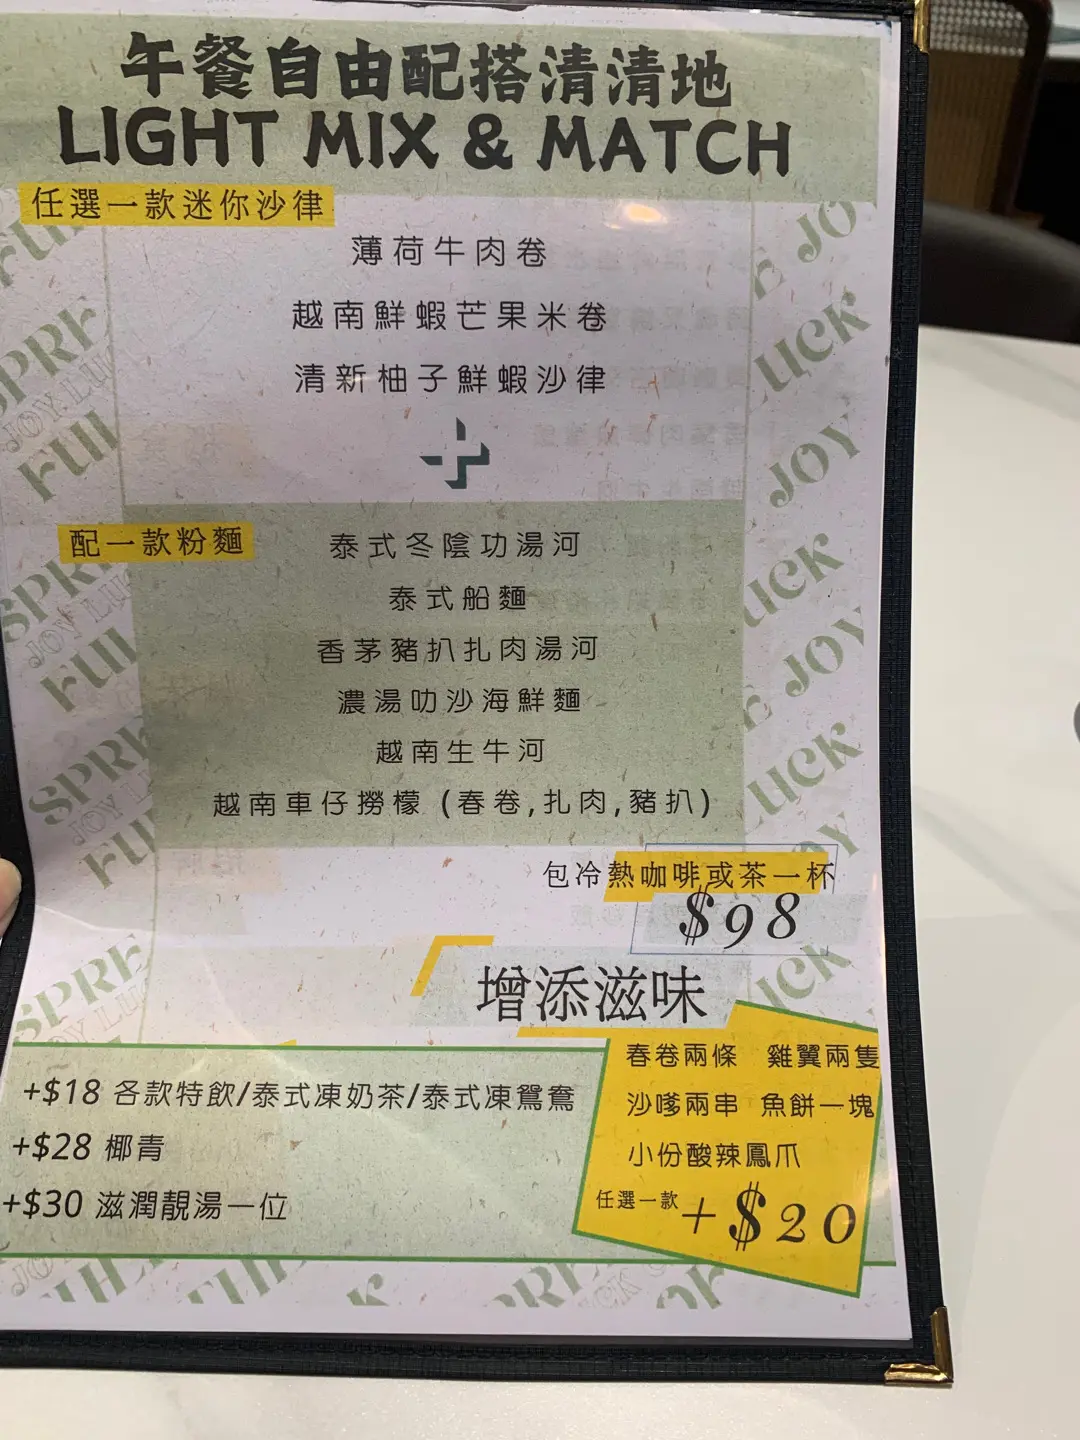 午餐自由配搭清清地
LIGHT MIX & MATCH
任選一款迷你沙律
薄荷牛肉卷
越南鮮蝦芒果米卷
清新柚子鮮蝦沙律
+
配一款粉麵
泰式冬陰功湯河
泰式船麵
香茅豬扒扎肉湯河
濃湯叻沙海鮮麵
越南生牛河
越南車仔撈檬 (春卷,扎肉,豬扒)
包冷熱咖啡或茶一杯
$98
增添滋味
+$18 各款特飲/泰式凍奶茶/泰式凍鴛鴦
+$28 椰青
+$30 滋潤靚湯一位
春卷兩條 雞翼兩隻
沙嗲兩串 魚餅一塊
小份酸辣鳳爪
任選一款 +$20